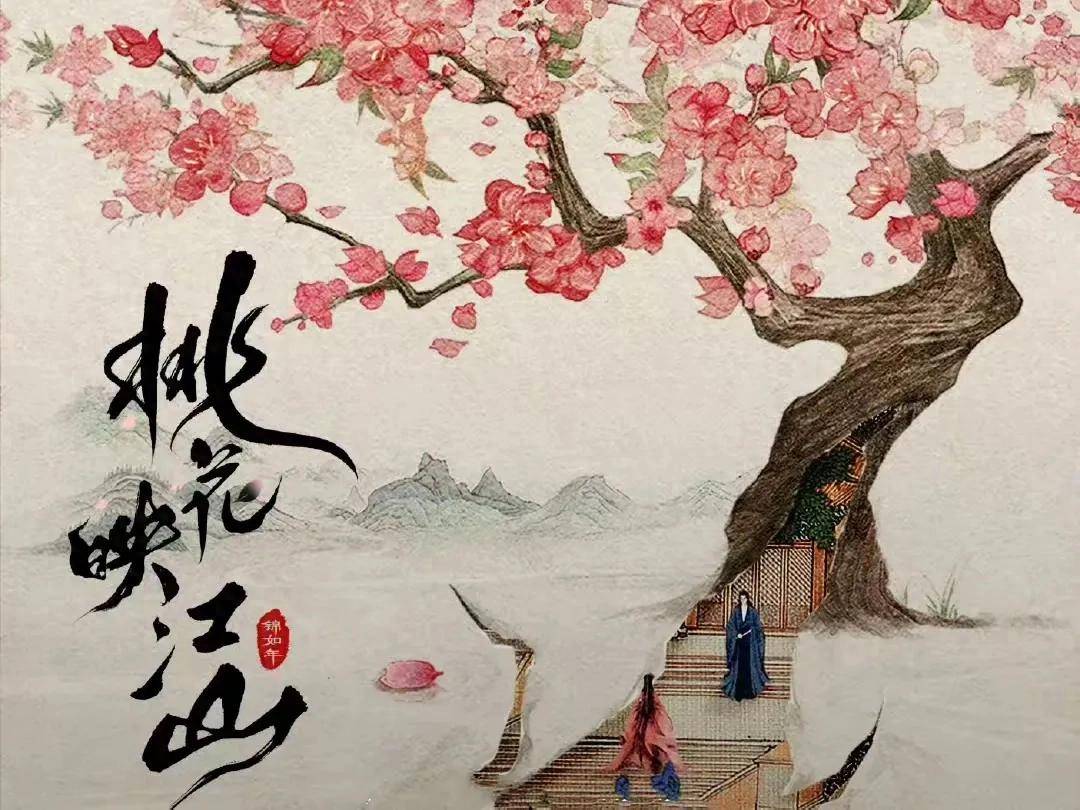 桃花映江山
锦如年